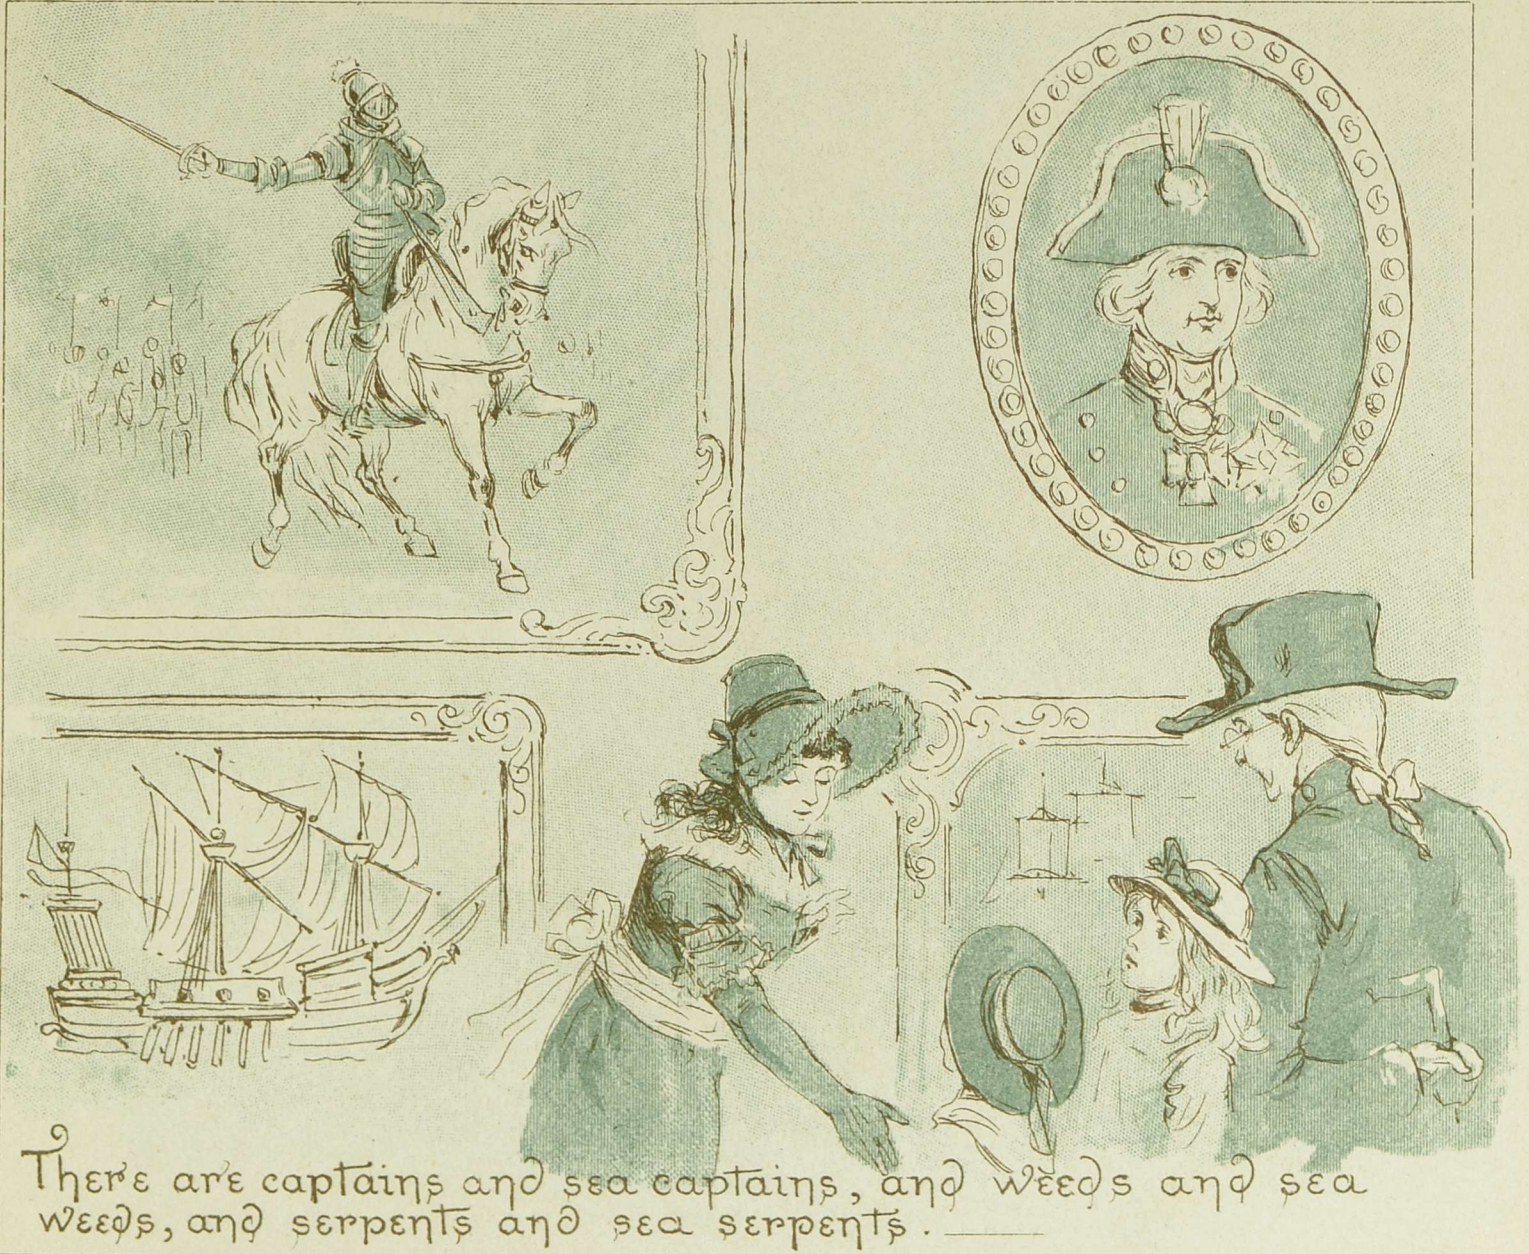 There are captains and sea captains, and weeds and sea
weeds, and serpents and sea serpents.